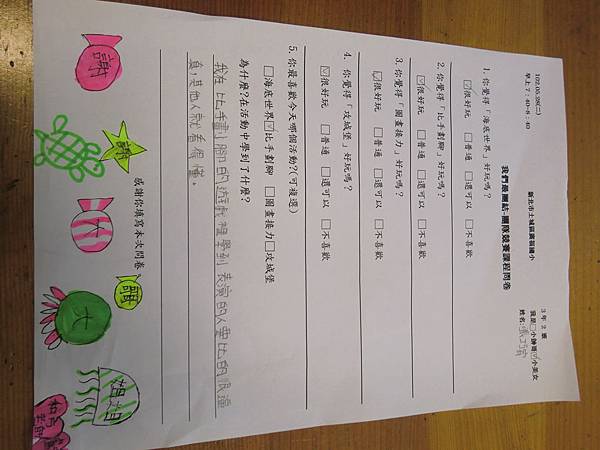 新北市土城區廣福國小
102.05.28(二)
早上 7:40~8:40
我們是團結-團隊競賽課程問卷
3 年 2 班
我是□小帥哥☑小美女
姓名:
1. 你覺得「海底世界」好玩嗎?
☑很好玩 □普通 □還可以 □不喜歡
2. 你覺得「比手劃聊」好玩嗎?
☑很好玩 □普通 □還可以 □不喜歡
3. 你覺得「圖畫接力」好玩嗎?
☑很好玩 □普通 □還可以 □不喜歡
4. 你覺得「攻城堡」好玩嗎?
☑很好玩 □普通 □還可以 □不喜歡
5. 你最喜歡今天哪個活動?(可複選)
□海底世界☑比手劃聊 □圖畫接力□攻城堡
為什麼?在活動中學到了什麼?
我在比手畫腳的遊戲裡學到表演的人要比的很逼
真,其他人就看很懂。
感謝你填寫本次問卷
謝
謝
大
謝
大
姐姐
和